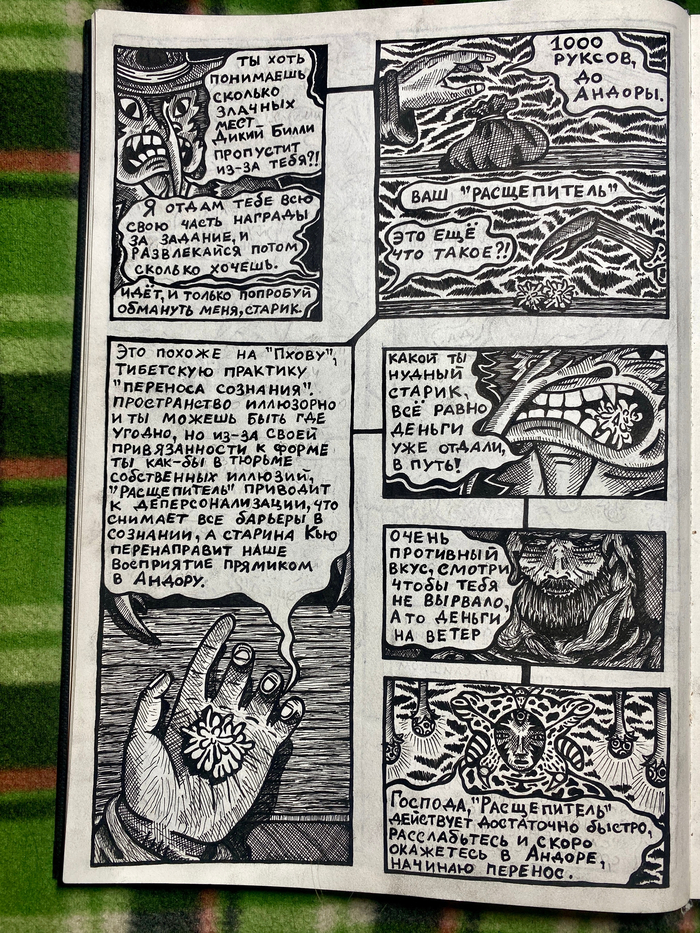 ТЫ ХОТЬ
ПОНИМАЕШЬ
СКОЛЬКО
ЗЛАЧНЫХ
МЕСТ
ДИКИЙ БИЛЛИ
ПРОПУСТИТ
ИЗ-ЗА ТЕБЯ?!
Я ОТДАМ ТЕБЕ ВСЮ
СВОЮ ЧАСТЬ НАГРАДЫ
ЗА ЗАДАНИЕ, И
РАЗВЛЕКАЙСЯ ПОТОМ
СКОЛЬКО ХОЧЕШЬ.
ИДЁТ, И ТОЛЬКО ПОПРОБУЙ
ОБМАНУТЬ МЕНЯ, СТАРИК.
1000
РУКСОВ,
ДО
АНДОРЫ.
ВАШ "РАСЩЕПИТЕЛЬ"
ЭТО ЕЩЁ
ЧТО ТАКОЕ?!
ЭТО ПОХОЖЕ НА "ПХОВУ",
ТИБЕТСКУЮ ПРАКТИКУ
"ПЕРЕНОСА СОЗНАНИЯ".
ПРОСТРАНСТВО ИЛЛЮЗОРНО
И ТЫ МОЖЕШЬ БЫТЬ ГДЕ
УГОДНО, НО ИЗ-ЗА СВОЕЙ
ПРИВЯЗАННОСТИ К ФОРМЕ
ТЫ КАК-БЫ В ТЮРЬМЕ
СОБСТВЕННЫХ ИЛЛЮЗИЙ,
"РАСЩЕПИТЕЛЬ" ПРИВОДИТ
К ДЕПЕРСОНАЛИЗАЦИИ, ЧТО
СНИМАЕТ ВСЕ БАРЬЕРЫ В
СОЗНАНИИ, А СТАРИНА КЬЮ
ПЕРЕНАПРАВИТ НАШЕ
ВОСПРИЯТИЕ ПРЯМИКОМ
В АНДОРУ.
КАКОЙ ТЫ
НУДНЫЙ
СТАРИК,
ВСЁ РАВНО
ДЕНЬГИ
УЖЕ ОТДАЛИ,
В ПУТЬ!
ОЧЕНЬ
ПРОТИВНЫЙ
ВКУС, СМОТРИ
ЧТОБЫ ТЕБЯ
НЕ ВЫРВАЛО,
А ТО ДЕНЬГИ
НА ВЕТЕР
ГОСПОДА, "РАСЩЕПИТЕЛЬ"
ДЕЙСТВУЕТ ДОСТАТОЧНО БЫСТРО,
РАССЛАБЬТЕСЬ И СКОРО
ОКАЖЕТЕСЬ В АНДОРЕ,
НАЧИНАЮ ПЕРЕНОС.